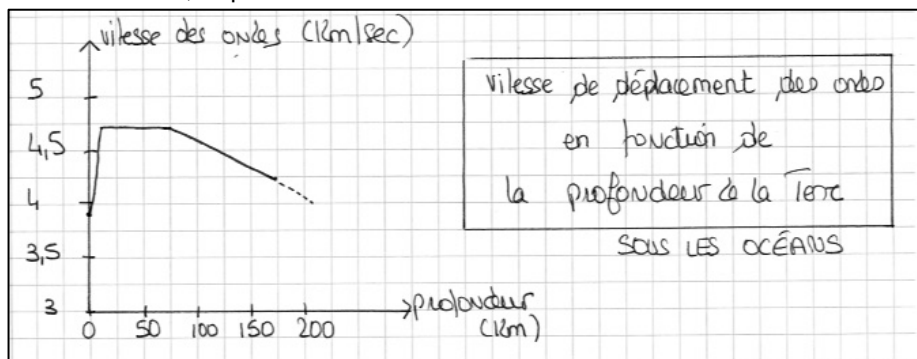 vitesse des ondes (Km/sec)
5
4,5
4
3,5
3
0 50 100 150 200
profondeur
(Km)
vitesse de déplacement des ondes
en fonction de
la profondeur de la Terre
SOUS LES OCÉANS